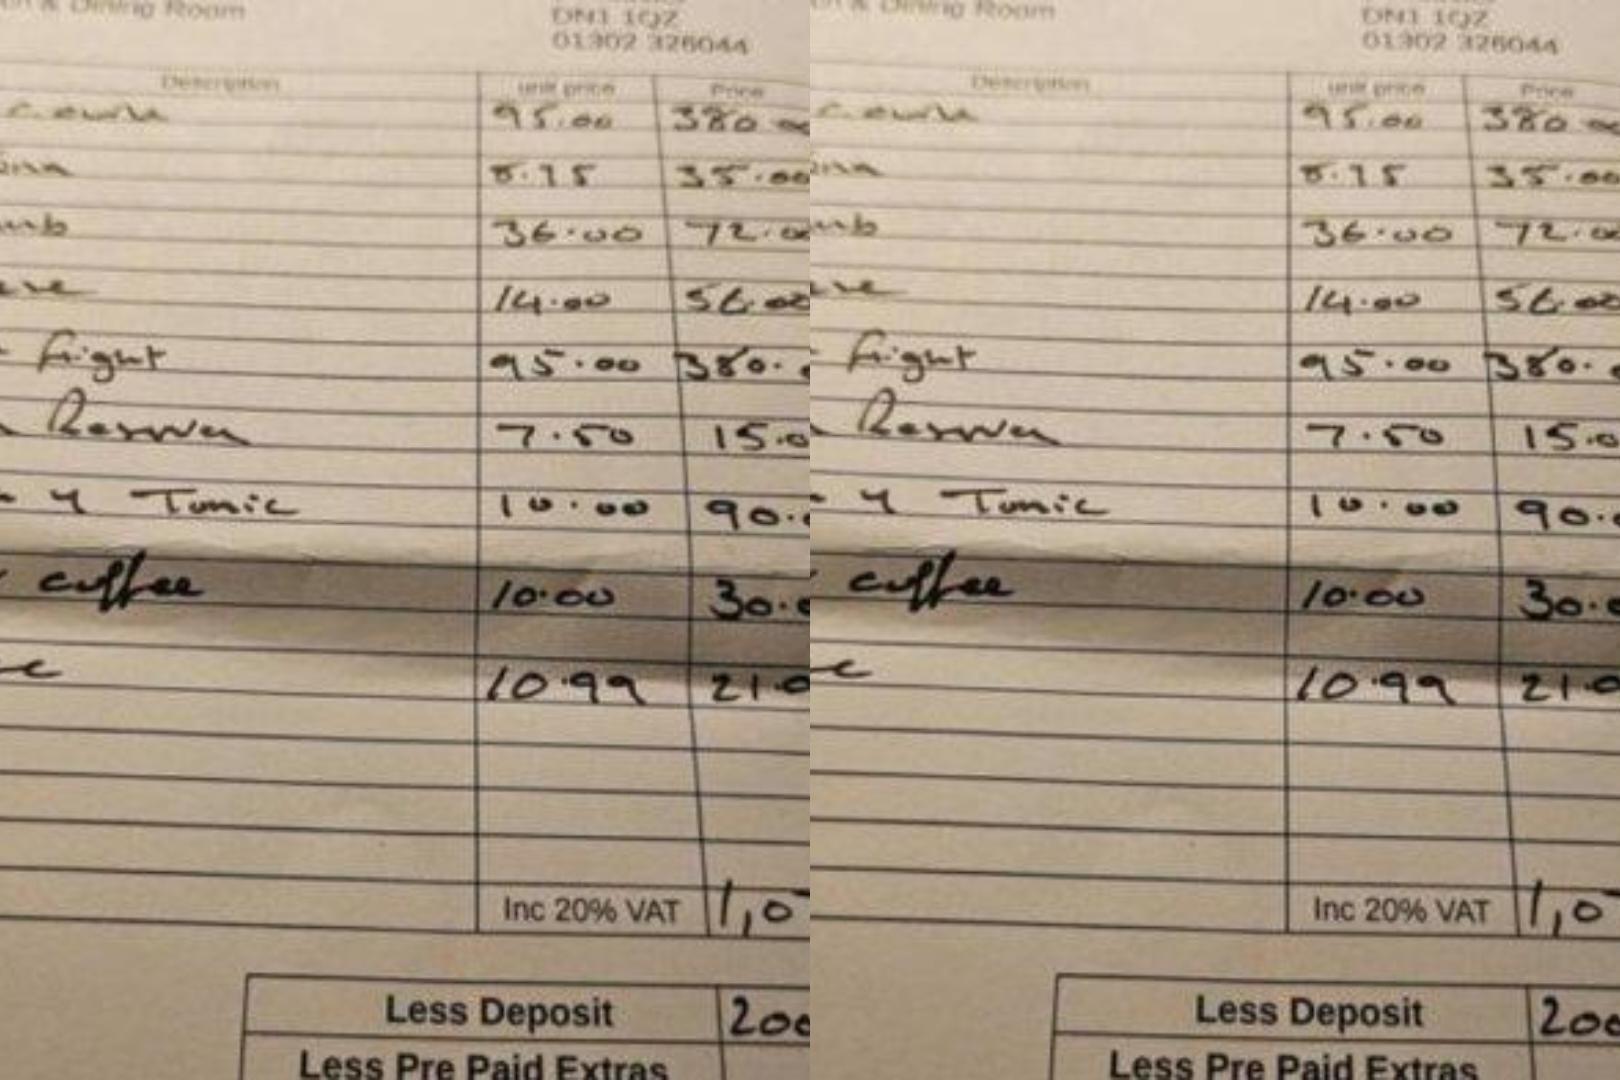 & Dining Room
DN1 1QZ
01302 326044
Description unit price Price
95.00 380
8.75 35.00
36.00 72.0
14.00 56.00
95.00 380.
7.50 15.0
Tonic 10.00 90.
coffee 10.00 30.0
10.99 21.0
Inc 20% VAT 1,0
Less Deposit 200
Less Pre Paid Extras
& Dining Room
DN1 1QZ
01302 326044
Description unit price Price
95.00 380
8.75 35.00
36.00 72.0
14.00 56.00
95.00 380.
7.50 15.0
Tonic 10.00 90.
coffee 10.00 30.0
10.99 21.0
Inc 20% VAT 1,0
Less Deposit 200
Less Pre Paid Extras